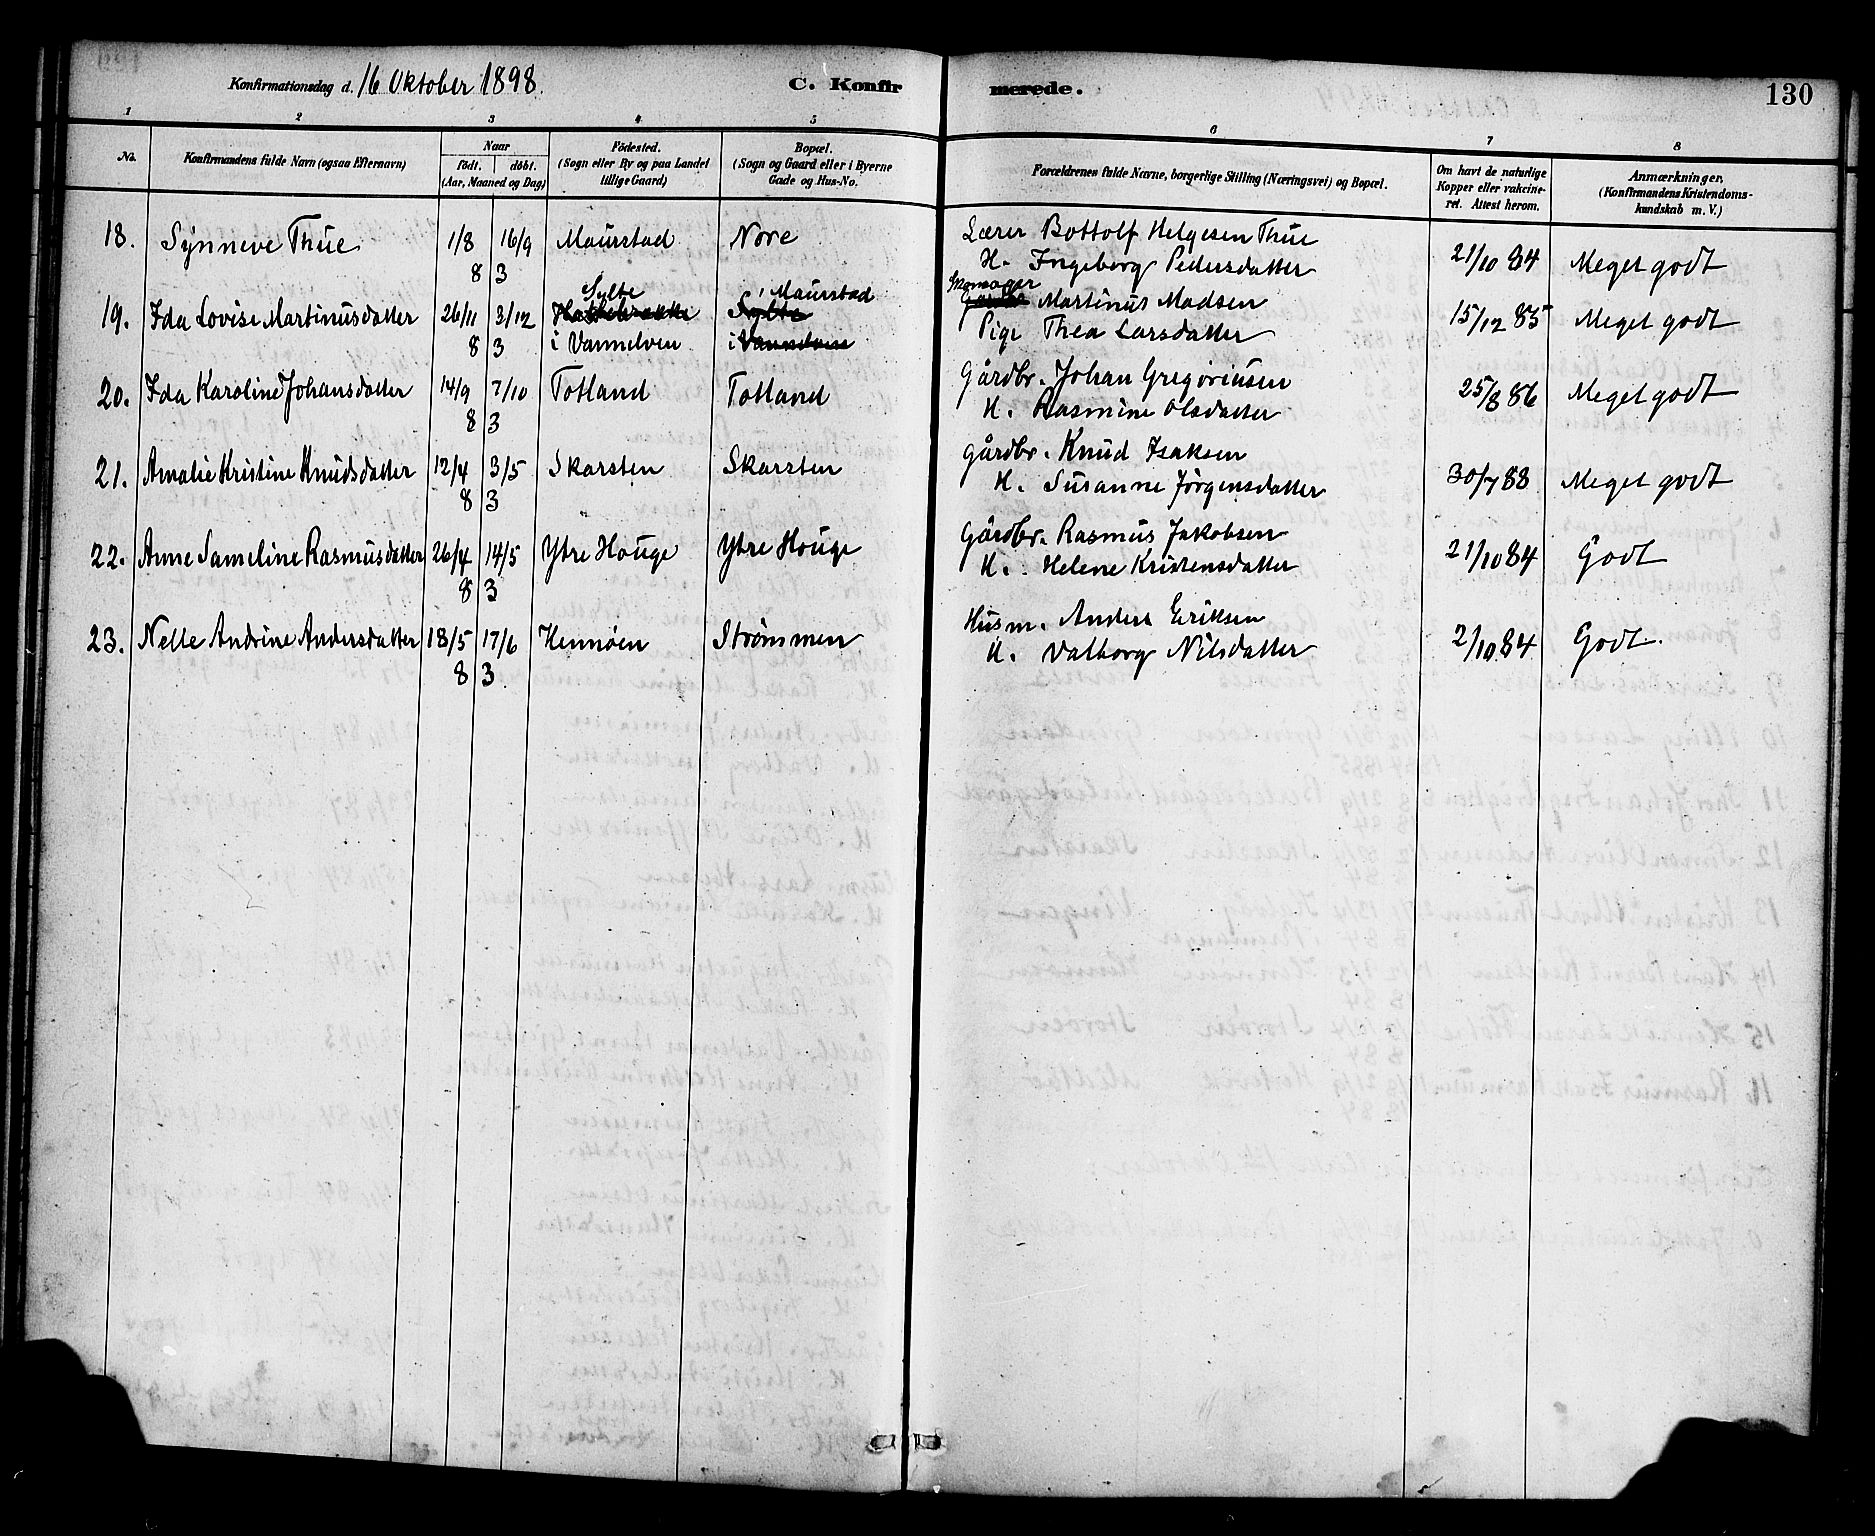 Konfirmationsdag d. 16 Oktober 1898. C. Konfirmerede. 130
1 2 3 4 5 6 7 8
No. Konfirmandens fulde Navn (ogsaa Efternavn) Naar født. døbt. (Aar, Maaned og Dag) Fødested. (Sogn eller By og paa Landet tillige Gaard) Bopæl. (Sogn og Gaard eller i Byerne Gade og Hus-No. Forældrenes fulde Navne, borgerlige Stilling (Næringsvei) og Bopæl. Om havt de naturlige Kopper eller vakcineret. Attest herom. Anmærkninger, (Konfirmandens Kristendomskundskab m. V.)
18. Synneve Thue 1/8 16/9 Maurstad Nore Lærer Bottolf Helgesen Thue 21/10 84 Meget godt
8 3 H. Ingeborg Pedersdatter
Sylte Maurstad Skomager
19. Ida Lovise Martinusdatter 26/11 3/12 Sylte Martinus Madsen 15/12 85 Meget godt
8 3 i Vannelven i Vannelven Pige Thea Larsdatter
20. Ida Karoline Johansdatter 14/9 7/10 Totland Totland Gårdbr. Johan Gregoriusen 25/8 86 Meget godt
8 3 H. Rasmine Olsdatter
21. Amalie Kristine Knudsdatter 12/4 3/5 Skarsten Skarsten Gårdbr. Knud Isaksen 30/7 88 Meget godt
8 3 H. Susanne Jørgensdatter
22. Anne Sameline Rasmusdatter 26/4 14/5 Ytre Houge Ytre Houge Gårdbr. Rasmus Jakobsen 21/10 84 Godt
8 3 H. Helene Kristensdatter
23. Nelle Andrine Andersdatter 18/5 17/6 Hennøen Strømmen Husm. Anders Eriksen 2/10 84 Godt.
8 3 H. Valborg Nilsdatter